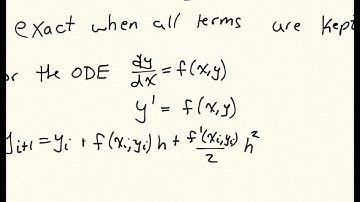 exact when all terms are kept
or the ODE dy/dx = f(x,y)
y' = f(x,y)
y_{i+1} = y_i + f(x_i,y_i)h + f'(x_i,y_i)/2 h^2